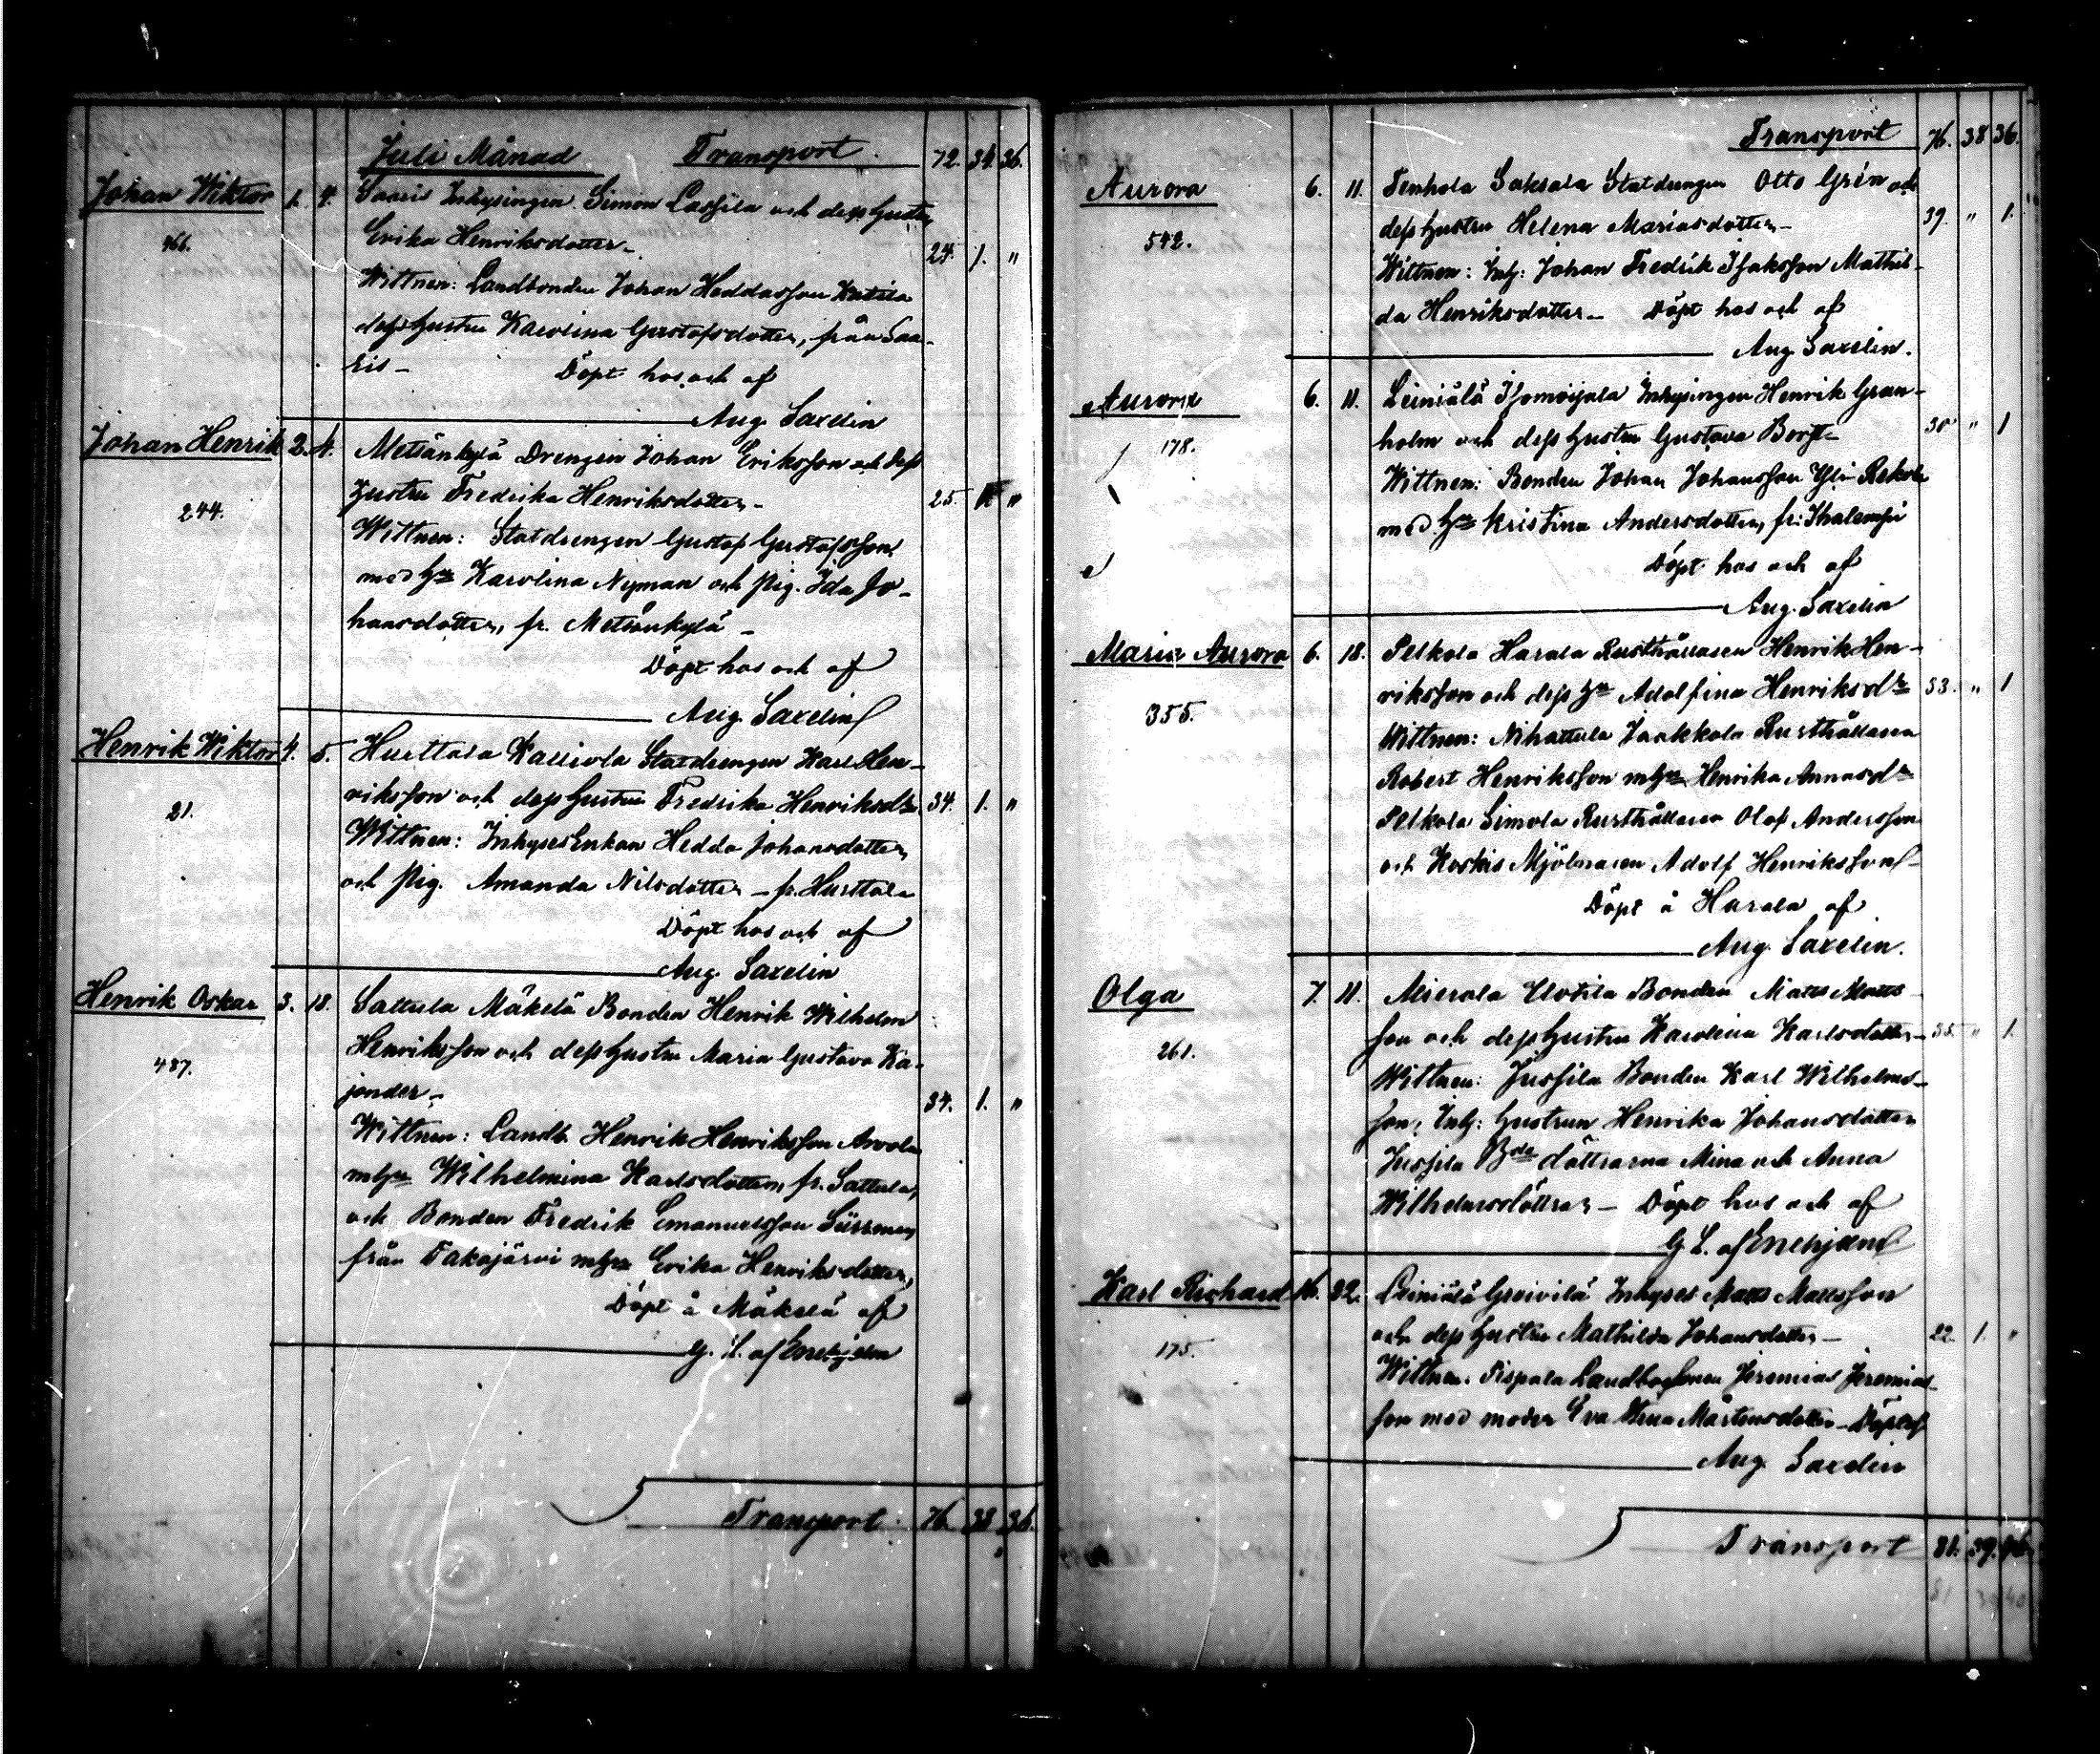 Juli Månad Transport 72. 34. 36.
Johan Wiktor 1. 4. Saaris Inhysingen Simon Lassila och dess hustru
466. Erika Henriksdotter — 24. 1. "
Wittnen: Landbonden Johan Heddasson
dess hustru Karolina Gustafsdotter, från Saa-
ris — Döpt hos och af
Aug. Saxelin
Johan Henrik 2. 4. Metsänkylä Drengen Johan Eriksson och dess
244. hustru Fredrika Henriksdotter — 25. "
Wittnen: Statdrengen Gustaf Gustafsson
med hu Karolina Nyman och pig. Ida Jo-
hansdotter, fr. Metsänkylä —
Döpt hos och af
Aug. Saxelin
Henrik Wiktor 4. 5. Hurttala Kalliola Statdrengen Karl Hen-
21. riksson och dess hustru Fredrika Henriksdtr. 34. 1. "
Wittnen: Inhyses Enkan Hedda Johansdotter
och pig. Amanda Nilsdotter — fr. Hurttala
Döpt hos och af
Aug. Saxelin
Henrik Oskar 3. 18. Sattula Mäkelä Bonden Henrik Wilhelm
487. Henriksson och dess hustru Maria Gustava Ka-
jander — 34. 1. "
Wittnen: Landb. Henrik Henriksson Arvola
mhu Wilhelmina Karlsdotter, fr. Sattula,
och Bonden Fredrik Emanuelsson
från Takajärvi mhu Erika Henriksdotter,
Döpt å Mäkelä af
G. L. af Enehjelm
Transport 76. 38. 36.
Transport 76. 38 36.
Aurora 6. 11. Tenhola Saksala Statdrengen Otto Grén och
542. dess hustru Helena Mariasdotter — 39. " 1.
Wittnen: Inh: Johan Fredrik Isaksson Mathil-
da Henriksdotter — Döpt hos och af
Aug. Saxelin.
Aurora 6. 11. Leiniälä Isomoijala Inhysingen Henrik Gran-
178. holm och dess hustru Gustava Borg — 30 " 1
Wittnen: Bonden Johan Johansson Yli Rekola
med hu Kristina Andersdotter, fr: Ihalempi
Döpt hos och af
Aug. Saxelin
Maria Aurora 6. 18. Pelkola Harala Rusthållaren Henrik Hen-
355. riksson och dess hu Adolfina Henriksdr 33. " 1
Wittnen: Nihattula Jaakkola Rusthållaren
Robert Henriksson mhu Henrika Annasdr
Pelkola Simola Rusthållaren Olof Andersson
och Koskis Mjölnaren Adolf Henriksson —
Döpt å Harala af
Aug. Saxelin.
Olga 7. 11. Mierola Uotila Bonden Matts Matts-
261. son och dess hustru Karolina Karlsdotter — 35. " 1.
Wittnen: Jussila Bonden Karl Wilhelms-
son, Inh: hustrun Henrika Johansdotter
Jussila Bde döttrarna Mina och Anna
Wilhelmsdöttrar — Döpt hos och af
G. L. af Enehjelm
Karl Richard 16. 22. Leiniälä Inhyses Matts Mattsson
175. och dess hustru Mathilda Johansdotter — 22. 1. "
Wittnen. Tispala Landbosonen Jeremias Jeremias-
son med moder Eva Stina Mårtensdotter — Döpt af
Aug. Saxelin
Transport 81. 39. 40.
81 39 40